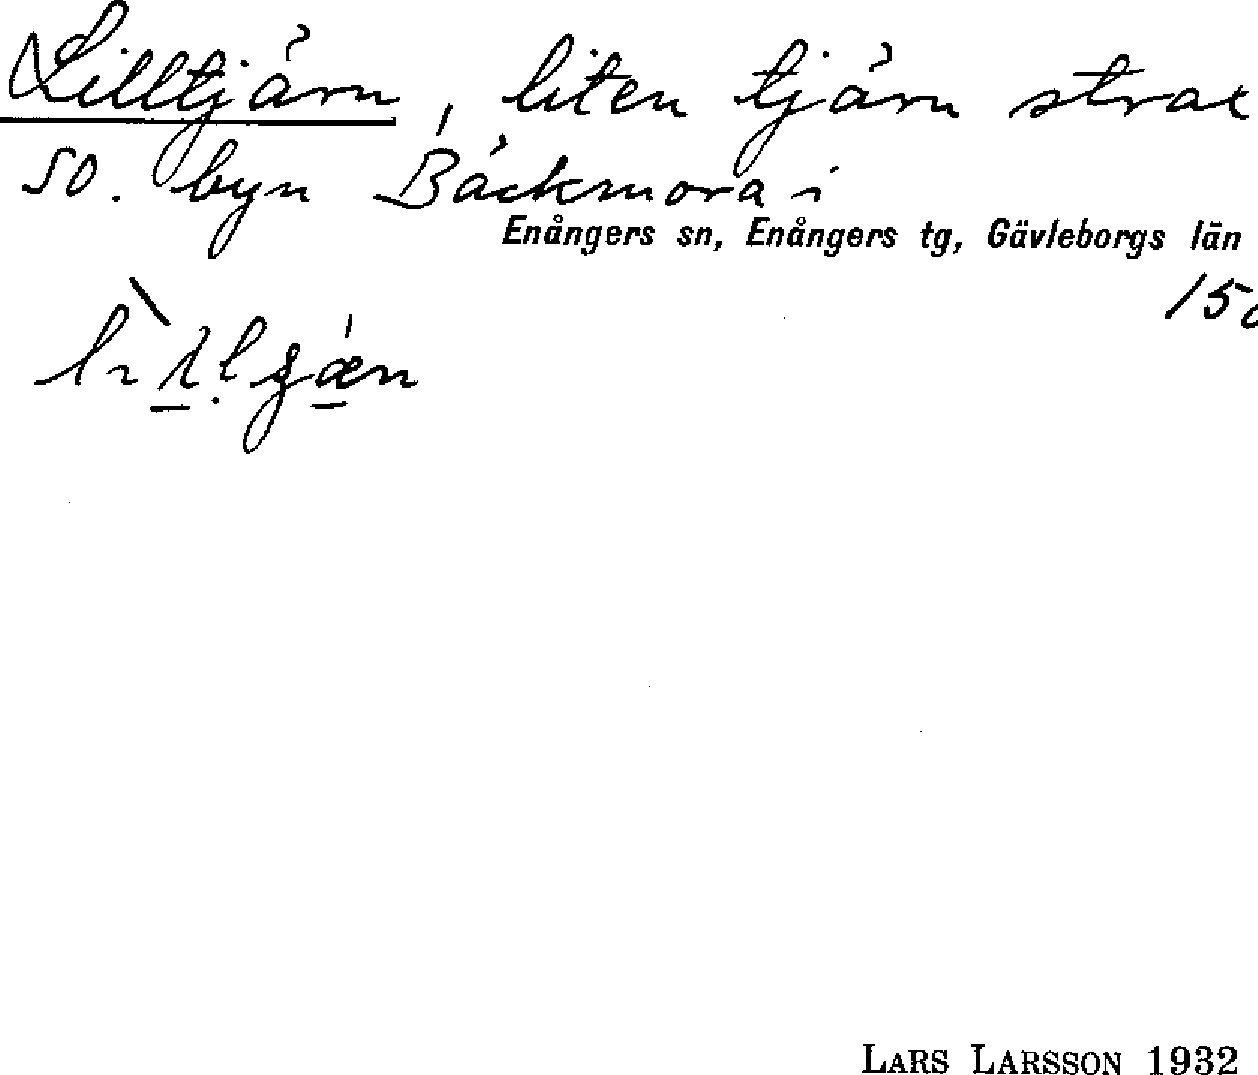 Lilltjärn, liten tjärn strax
SO. byn Bäckmora i
Enångers sn, Enångers tg, Gävleborgs län
LARS LARSSON 1932